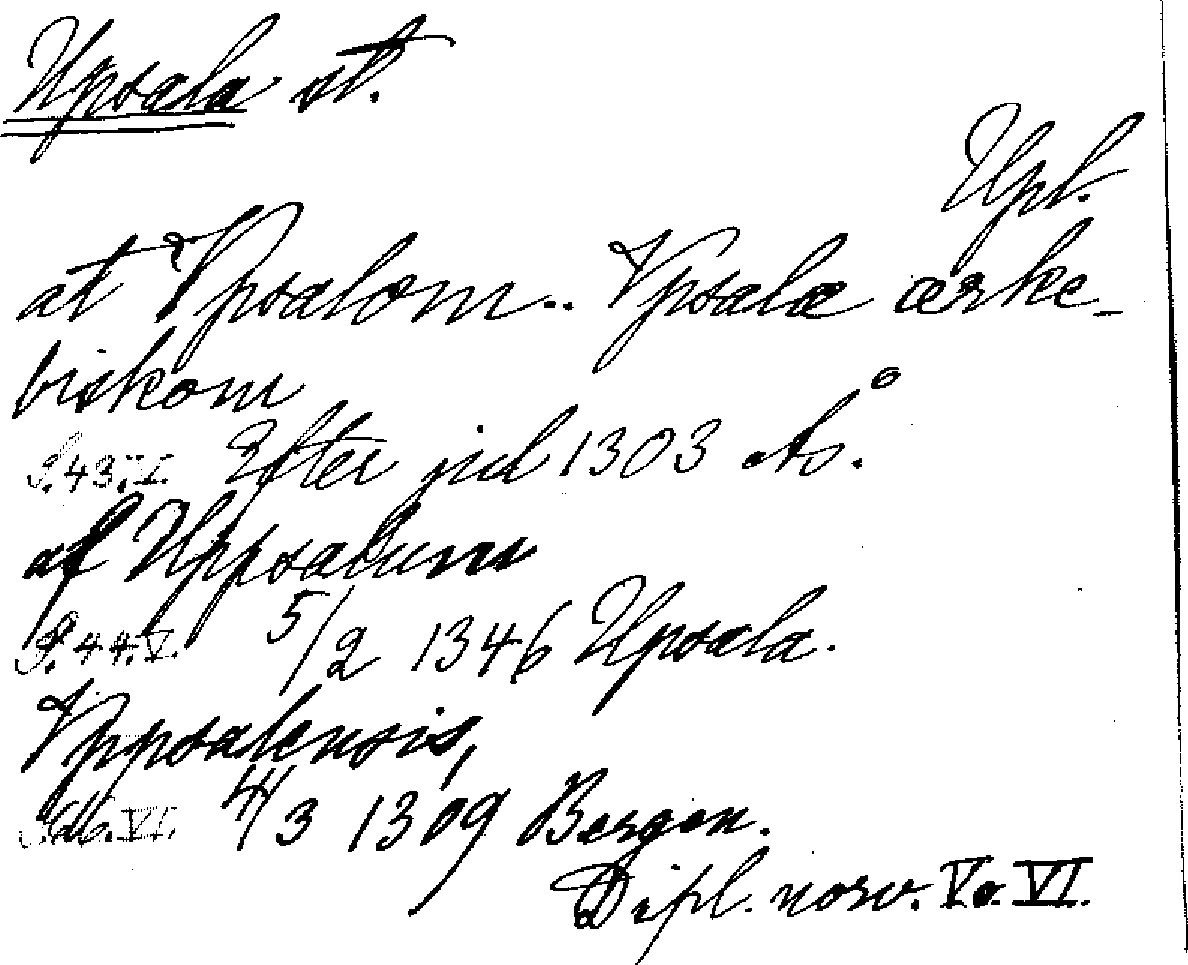 Upsala st.
Upl.
at Vpsalom.. Vpsala ærke-
biskom
S. 43. V. Efter jul 1303 Ås.
af Uppsalum
S. 44. V. 5/2 1346 Upsala.
Vppsalensis,
VI. 4/3 1309 Bergen.
Dipl. norv. V o. VI.